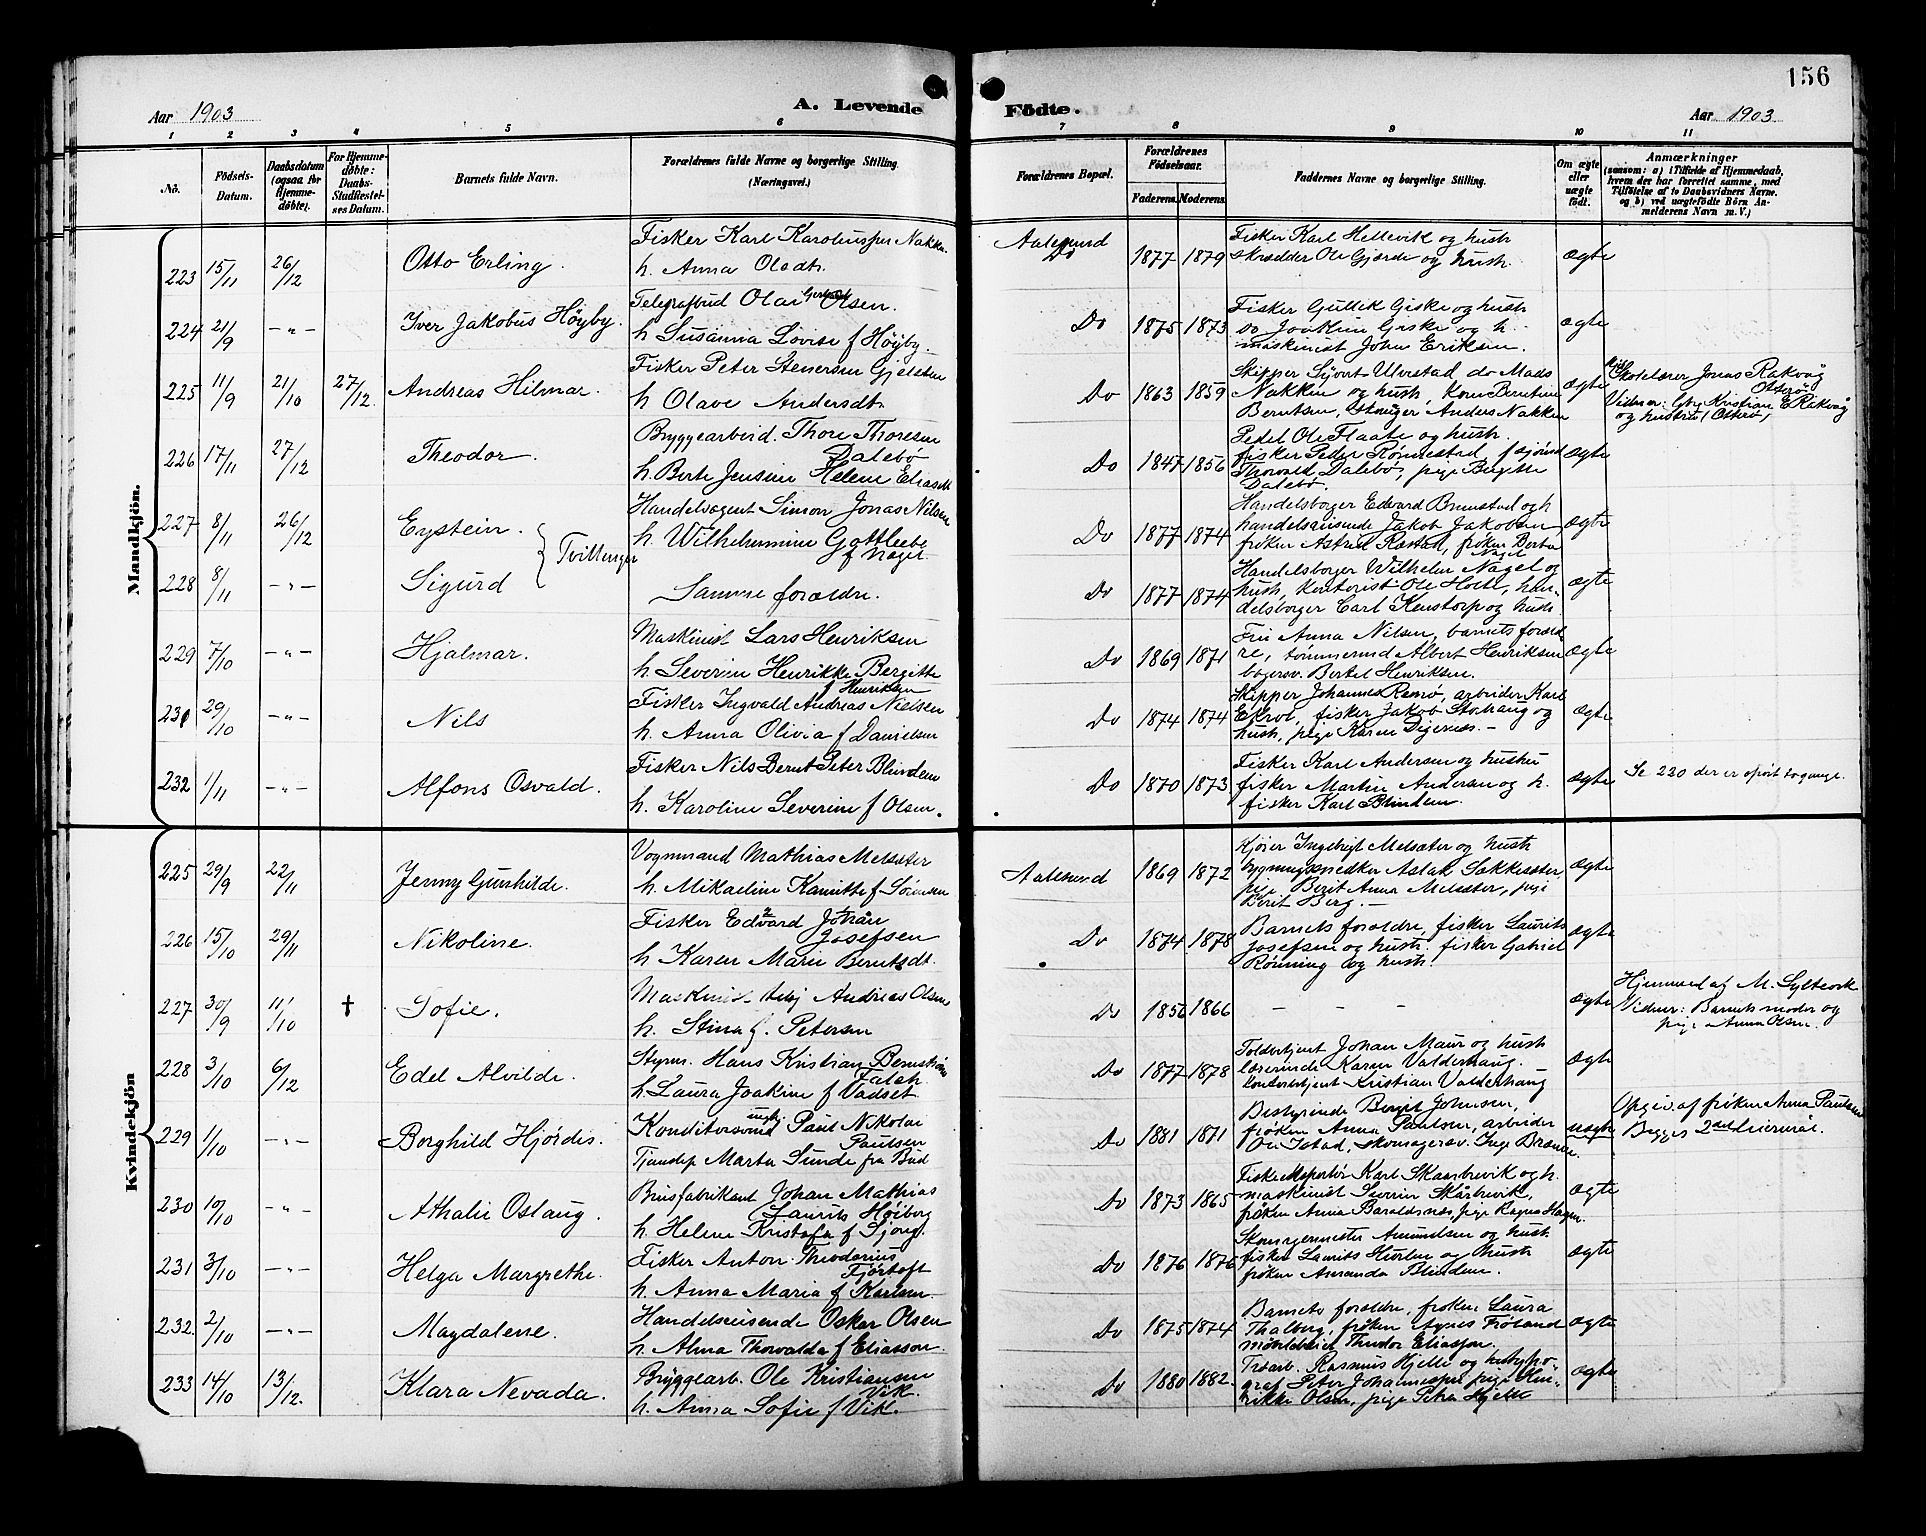 156
Aar 1903
A. Levende
Födte.
Aar 1903
1 2 3 4 5 6 7 8 9 10 11
No.
Födsels-Datum.
Daabsdatum (ogsaa for Hjemme-döbte).
For Hjemme-döbte: Daabs-Stadfæstel-ses Datum.
Barnets fulde Navn.
Forældrenes fulde Navne og borgerlige Stilling. (Næringsvei.)
Forældrenes Bopæl.
Forældrenes Födselsaar.
Faderens. Moderens.
Faddernes Navne og borgerlige Stilling.
Om ægte eller uægte födt.
Anmærkninger
(saasom: a) i Tilfælde af Hjemmedaab, hvem der har forrettet samme, med Tilföielse af to Daabsvidners Navne, og b) ved uægtefödte Börn An-melderens Navn m. V.)
Mandkjön.
223 15/11 26/12 Otto Erling.
Fisker Karl Karolius Nakken
h. Anna Olsdtr.
Aalesund
Do 1877 1879
Fisker Karl Hellevik og hustr
skrædder Ole Gjærde og hustr.
ægte
224 21/9 -"- Iver Jakobus Höyby.
Telegrafbud Olai Olsen
h Susanna Lovise f Höyby.
Do 1875 1873
Fisker Gullik Giske og hustr
do Joakim Giske og h.
maskinist John Eriksen.
ægte
225 11/9 21/10 27/12. Andreas Hilmar.
Fisker Peter Stenersen Gjelsten
h Olave Andersdtr
Do 1863 1859
Skipper Sivert Ulvestad do Mads
Nakken og hustr, Kone Berntine
Berntsen, Anders Nakken
ægte
Skolelærer Jonas Rakvåg
Otterö
Vidner: Kristian E Rakvåg
og hustru (Otterö)
226 17/11 27/12 Theodor.
Bryggearbeid. Thore Thoresen
Dalebö
h. Berte Jensine Helene Eliasdt
Do 1847 1856
Pedel Ole Flaate og hustr.
fisker Peder Rönnestad,
Thorvald Dalebö, pige Birgitte
Dalebö.
ægte
227 8/11 26/12 Eystein.
Tvillinger
Handelsagent Simon Jonas Nilsen
h. Wilhelmine Gottliebe
f Nagel.
Do 1877 1874
Handelsborger Edvard Brunstad og h
handelsreisende Jakob Jakobsen,
fröken Astrid Rastad, fröken Berta
Nagel
ægte
228 8/11 -"- Sigurd
Samme forældre.
Do 1877 1874
Handelsborger Wilhelm Nagel og
hustr, kontorist Ole Holte, han-
delsborger Carl Kenstorp og hustr.
ægte
229 7/10 -"- Hjalmar.
Maskinist Lars Henriksen
h. Severin Henrikke Bergitte
f Henriksen
Do 1869 1871
Fru Anna Nilsen, barnets foræld-
re, tömmermd Albert Henriksen
bagersv. Bertel Henriksen.
ægte
231 29/10 -"- Nils
Fisker Ingvald Andreas Nielsen
h. Anna Olivia f Danielsen
Do 1874 1874
Skipper Johannes Remö, arbeider Karl
Ekroe, fisker Jakob Stohaug og
hustr, pige Karen Digernes.-
ægte
232 1/11 -"- Alfons Osvald.
Fisker Nils Bernt Peter Blindem
h. Karoline Severine f Olsen.
Do 1870 1873
Fisker Karl Andersen og hustru
fisker Martin Andersen og h.
fisker Karl Blindem.
ægte
Se 230 der er opført to gange.
Kvindekjön
225 29/9 22/11 Jenny Gunhilde.
Vognmand Mathias Melsæter
h. Mikaeline Kamitte f Sörensen
Aalesund 1869 1872
Kjöier Ingebrigt Melsæter og hustr
bygningssnedker Aslak Sakkesæter,
pige Berit Anna Melsæter, pige
Berit Berg.-
ægte
226 15/10 29/11 Nikoline.
Fisker Edvard Johan
Josefsen
h Karen Marie Berntsdt.
Do 1874 1878
Barnets forældre, fisker Laurits
Josefsen og hustr. fisker Gabriel
Rönning og hustr.
ægte
227 30/9 11/10 † Sofie.
Maskinist Andreas Olsen
h. Stina f. Petersen
Do 1856 1866
- - -
ægte
Hjemmed af M. Syltevik
Vidner: Barnets moder og
pige Anna Olsen.
228 3/10 6/12 Edel Alvilde.
Styrm. Hans Kristian Bernström
Falch
h Laura Joakime f Vadset
Do 1877 1878
Toldbetjent Johan Maur og hustr
lærerinde Karen Valderhaug.
Kontorbetjent Kristian Valderhaug
ægte
229 1/10 -"- Borghild Hjördis.
Konditorsvend ungk. Paul Nikolai
Paulsen
Tjenstep Marta Sunde fra Bud
Do 1881 1871
Bestyrinde Berit Johnsen,
fröken Anna Paulsen, arbeider
Ole Istad, skomagersv. Inge Brænne.
uægte
Opgiv af fröken Anna Paulsen
Begges 2det leiermål.
230 10/10 -"- Athalie Oslaug.
Brusfabrikant Johan Mathias
Laurits Höiberg
h. Helene Kristofa f Sjong.
Do 1873 1865
Fiskeexportör Karl Skaarbrevik og h.
maskinist Severin Skårbrevik,
fröken Anna Baraldsnes, pige Ragna Hagen.
ægte
231 3/10 -"- Helga Margrethe.
Fisker Anton Theodorius
Fjörtoft
h. Anna Maria f Karlsen.
Do 1876 1876
Skomagermester Amundsen og hustr
fisker Laurits Hurlen og hustr
fröken Amanda Blindem.
ægte
232. 2/10 -"- Magdalene.
Handelsreisende Oskar Olsen
h. Alma Thorvalda f Eliassen.
Do 1875 1874
Barnets forældre, fröken Laura
Thalberg, fröken Agnes Fröland
Theodor Eliassen.
ægte
233 14/10 13/12. Klara Nevada.
Bryggearb. Ole Kristiansen
Vik
h. Anna Sofie f Vik.
Do 1880 1882.
Træarb. Rasmus Hjelle og h. typo-
graf Peter Johannessen pige Hen-
rikke Olsen, pige Petra Hjelle
ægte